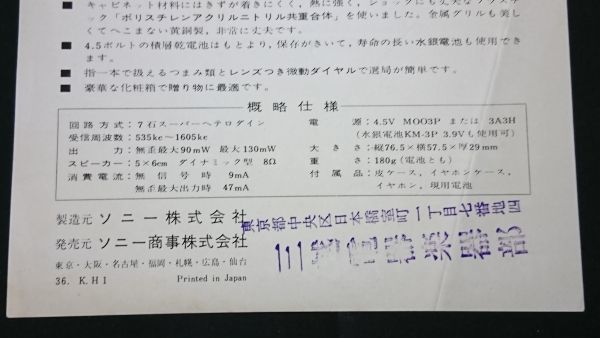 ■ キャビネット材料にはきずが着きにくく，熱に強く，ショックにも丈夫なプラスチ
ック「ポリスチレンアクリルニトリル共重合体」を使いました。金属グリルも美し
くてへこまない黄銅製，非常に丈夫です。
■ 4.5ボルトの積層乾電池はもとより，保存がきいて，寿命の長い水銀電池も使用でき
ます。
■ 指一本で扱えるつまみ類とレンズつき微動ダイヤルで選局が簡単です。
■ 豪華な化粧箱で贈り物に最適です。
概略仕様
回路方式：7石スーパーヘテロダイン
受信周波数：535kc～1605kc
出力：無歪最大90mW 最大130mW
スピーカー：5×6cm ダイナミック型 8Ω
消費電流：無信号時 9mA
無歪最大出力時 47mA
電源：4.5V MOO3P または 3A3H
（水銀電池KM-3P 3.9Vも使用可）
大きさ：縦76.5×横57.5×厚29mm
重さ：180g（電池とも）
付属品：皮ケース，イヤホンケース，
イヤホン，現用電池
製造元 ソニー株式会社
発売元 ソニー商事株式会社
東京・大阪・名古屋・福岡・札幌・広島・仙台
36. K.H I Printed in Japan
東京都中央区日本橋室町一丁目七番地四
三越
楽器部